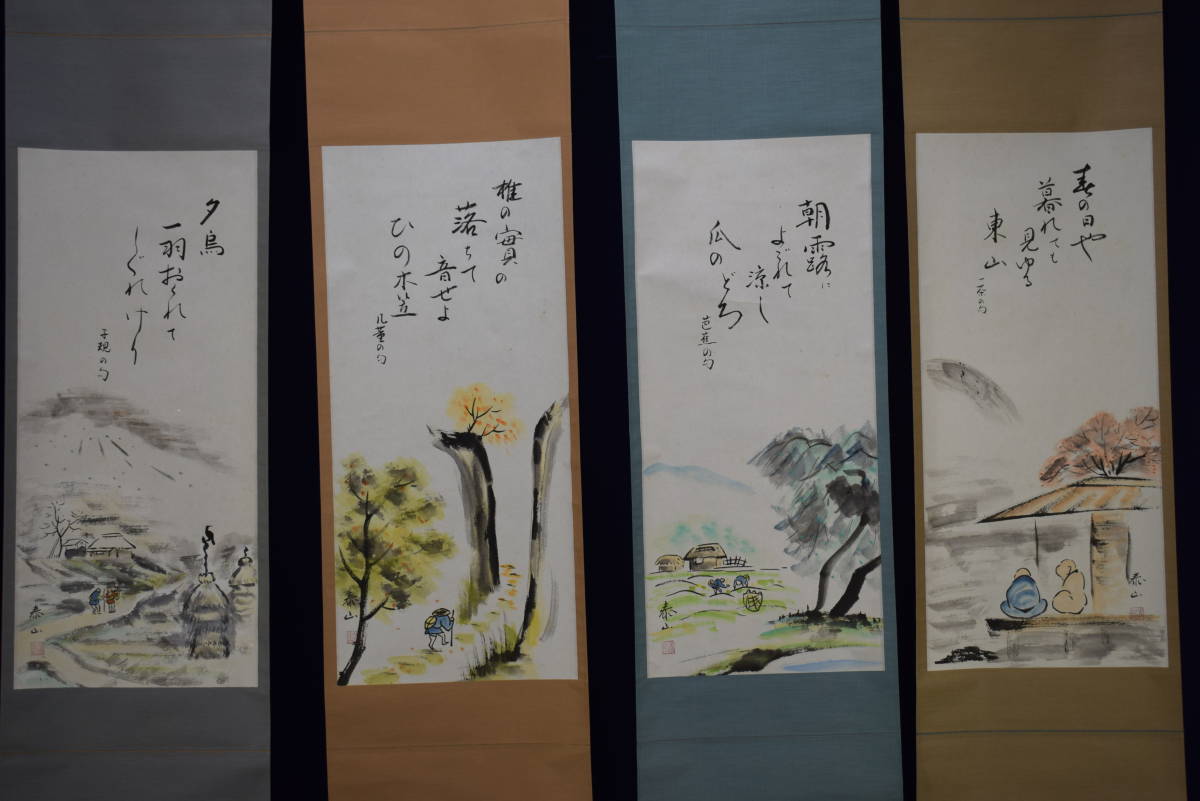 春の日や
暮れても
見ゆる
東山
一茶の句
泰山
朝露に
よごれて
涼し
瓜の
どろ
芭蕉の句
泰山
椎の實の
落ちて
音せよ
ひの木笠
几董の句
泰山
夕烏
一羽おくれて
しぐれけり
子規の句
泰山